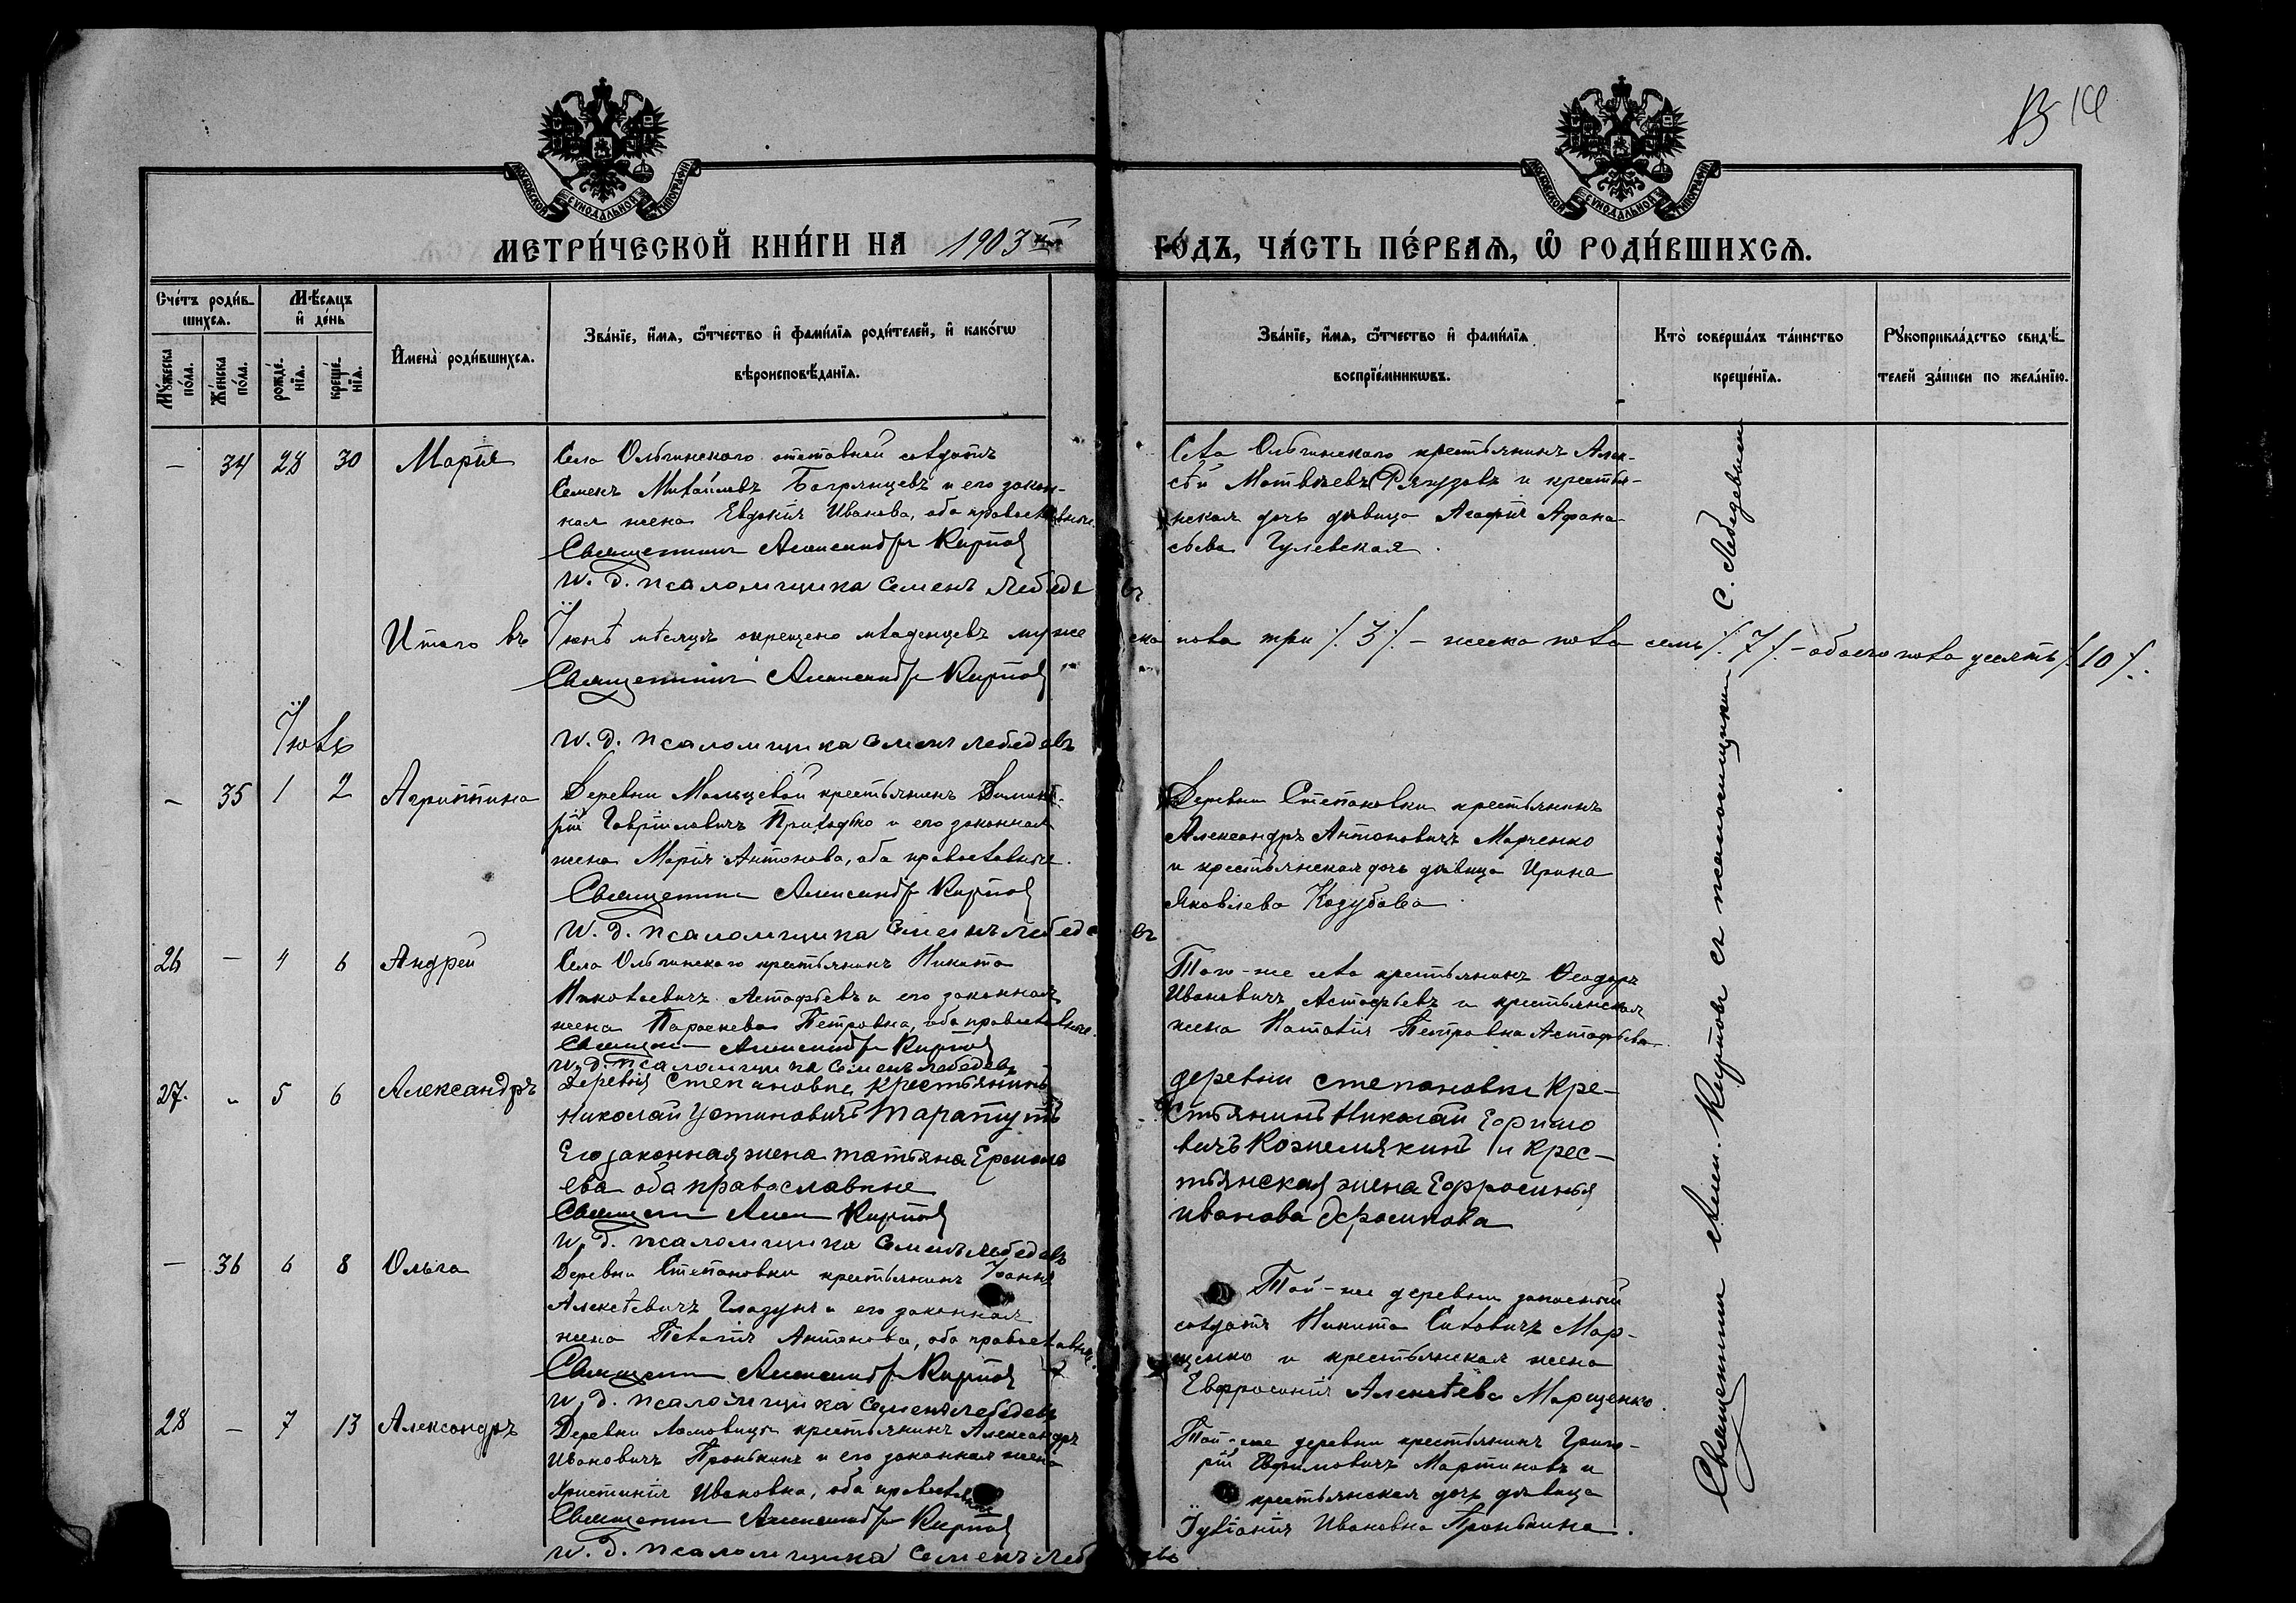 14
МОСКОВСКОЙ СѴНОДАЛЬНОЙ ТИПОГРАФІИ
МОСКОВСКОЙ СѴНОДАЛЬНОЙ ТИПОГРАФІИ
МЕТРИ́ЧЕСКОЙ КНИ́ГИ НА 1903 ГО́ДЪ, ЧА́СТЬ ПЕ́РВАѦ, Ѡ҆ РОДИ́ВШИХСѦ.
Сче́тъ роди́вшихсѧ.
Мѣ́сѧцъ и҆ де́нь
Мꙋ́жеска по́ла.
Же́нска по́ла.
рожде́нїѧ.
креще́нїѧ.
И҆мена̀ роди́вшихсѧ.
Зва́нїе, и҆́мѧ, ѻ҆́тчество и҆ фами́лїѧ роди́телей, и҆ како́гѡ вѣроисповѣ́данїѧ.
Зва́нїе, и҆́мѧ, ѻ҆́тчество и҆ фами́лїѧ воспрїе́мникѡвъ.
Кто̀ соверша́лъ та́инство креще́нїѧ.
Рꙋкоприкла́дство свидѣ́телей за́писи по жела́нїю.
— 34 28 30 Марія
Села Ольгинскаго отставной солдатъ
Семенъ Михайловъ Багрянцевъ и его закон-
ная жена Евдокія Иванова, оба православные.
Священникъ Александръ Кирпов
И. д. псаломщика Семенъ Лебедевъ
Села Ольгинскаго крестьянинъ Алек-
сѣй Матвѣевъ и крестья-
нская дочь дѣвица Агафія Афана-
сьева Гулевская.
Итого въ Іюнѣ мѣсяцѣ окрещено младенцевъ мужеска пола три /.3/. – женска пола семь /.7/. – обоего пола десять /.10/.
Священникъ Александръ Кирпов
И. д. псаломщика Семенъ Лебедевъ
Іюль
— 35 1 2 Агриппина
Деревни Мальцевой крестьянинъ Димит-
рій Гавріиловичъ Приходько и его законная
жена Марія Антонова, оба православные.
Священникъ Александръ Кирпов
И. д. псаломщика Семенъ Лебедевъ
Деревни Степановки крестьянинъ
Александръ Антоновичъ Марченко
и крестьянская дочь дѣвица Ирина
Яковлева Козубова.
26 — 4 6 Андрей
Села Ольгинскаго крестьянинъ Никита
Николаевичъ Астафьевъ и его законная
жена Параскева Петровна, оба православные.
Священ Александръ Кирпов
И. д. псаломщика Семенъ Лебедевъ
Того-же села крестьянинъ Ѳеодоръ
Ивановичъ Астафьевъ и крестьянская
жена Наталія Петровна Астафьева.
27. „ 5 6 Александръ
Деревня Степановка крестьянинъ
Николай Устиновичъ Тарапутъ
Его законная жена татьяна Ермола
ева оба православные
Священ Алек Кирпов
И. д. псаломщика Семенъ Лебедевъ
деревни степановки Кре-
стьянинъ Николай Ефимо
вичъ Кожемякинъ и Крес-
тьянская жена Ефросинья
иванова
— 36 6 8 Ольга
Деревни Степановки крестьянинъ Іоаннъ
Алексѣевичъ Гладунъ и его законная
жена Пелагія Антонова, оба православные.
Священ Александръ Кирпов
И. д. псаломщика Семенъ Лебедевъ
Той-же деревни запасный
солдатъ Никита Силовичъ Мар-
щенко и крестьянская жена
Евфросинія Алексѣева Марщенко.
28 — 7 13 Александръ
Деревни Ламовицы крестьянинъ Александръ
Ивановичъ Пронькинъ и его законная жена
Христинія Ивановна, оба православные
Священник Александръ Кирпов
И. д. псаломщика Семенъ Лебедевъ
Той-же деревни крестьянинъ Григо-
рій Евфимовичъ Мартиновъ и
крестьянская дочь дѣвица
Іуліанія Ивановна Пронькина.
Священники Алекс. Кирповъ съ псаломщикомъ С. Лебедевымъ